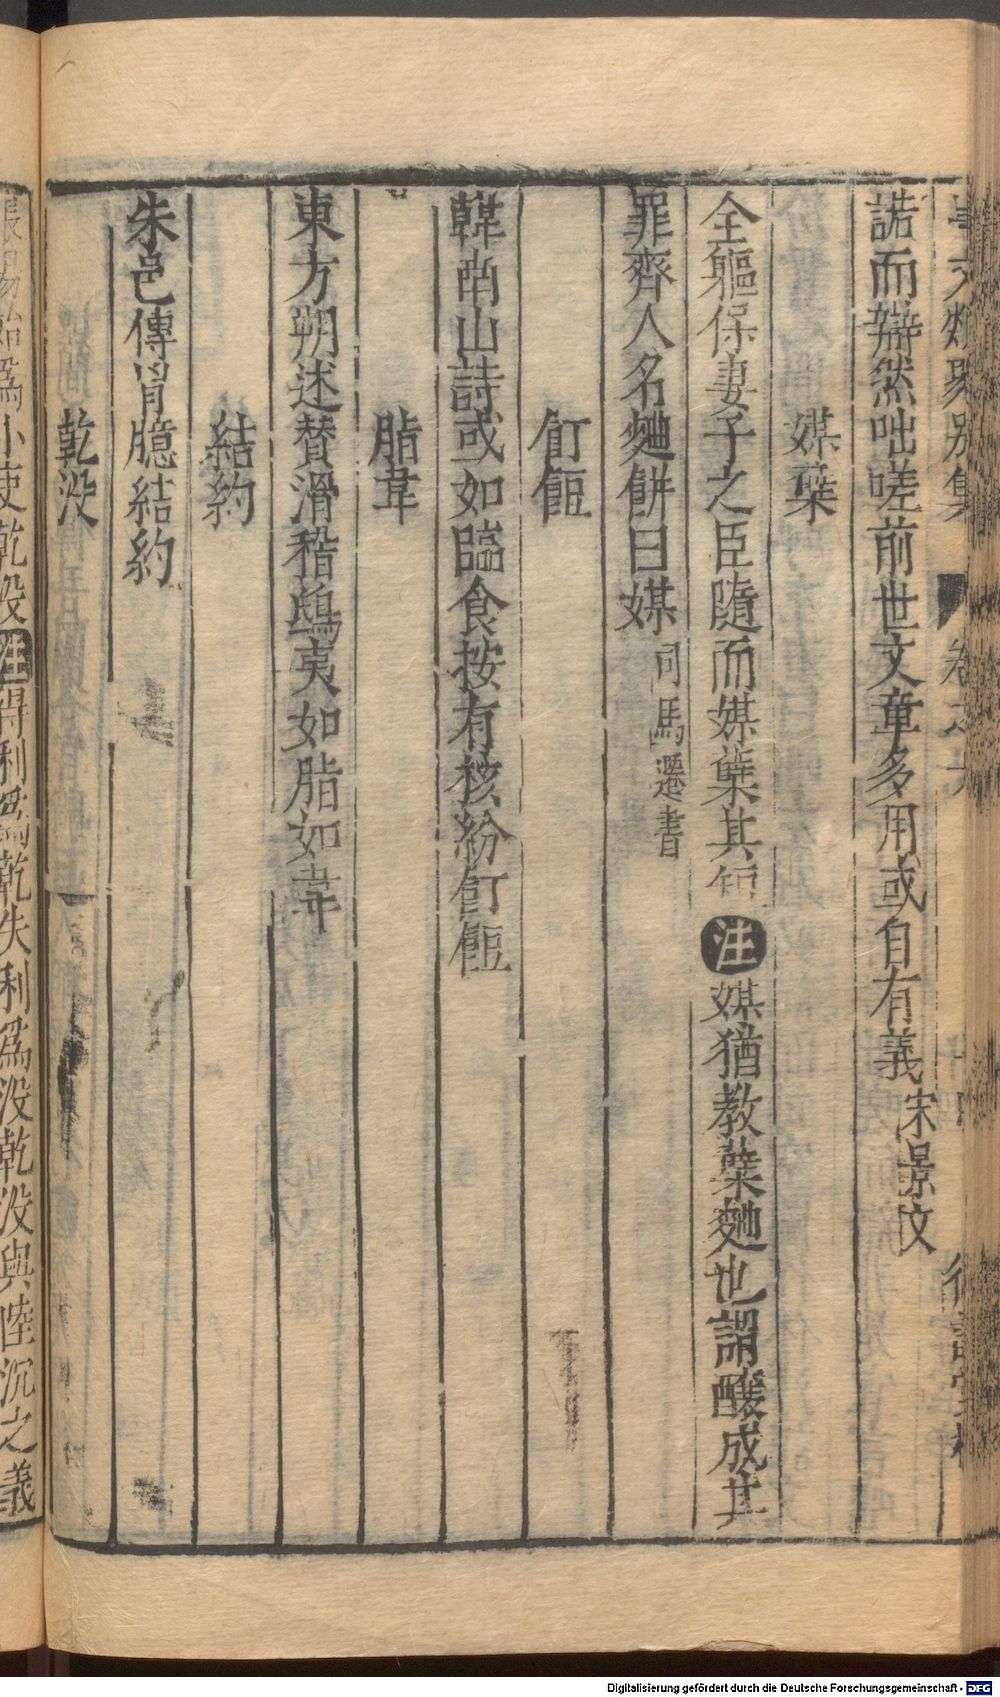 事文類聚別集 卷之六
誥而辯然咄嗟前世文章多用或自有義宋景文
媒蘖
全軀保妻子之臣隨而媒蘖其短注媒猶教蘖麯也謂釀成其
罪齊人名麯餅曰媒司馬遷書
飣餖
韓南山詩或如臨食按有核紛飣餖
脂韋
東方朔述賛滑稽鴟夷如脂如韋
結約
朱邑傳胷臆結約
乾没
張湯始爲小吏乾没注得利爲乾失利爲没乾没與陸沉之義
Digitalisierung gefördert durch die Deutsche Forschungsgemeinschaft - DFG